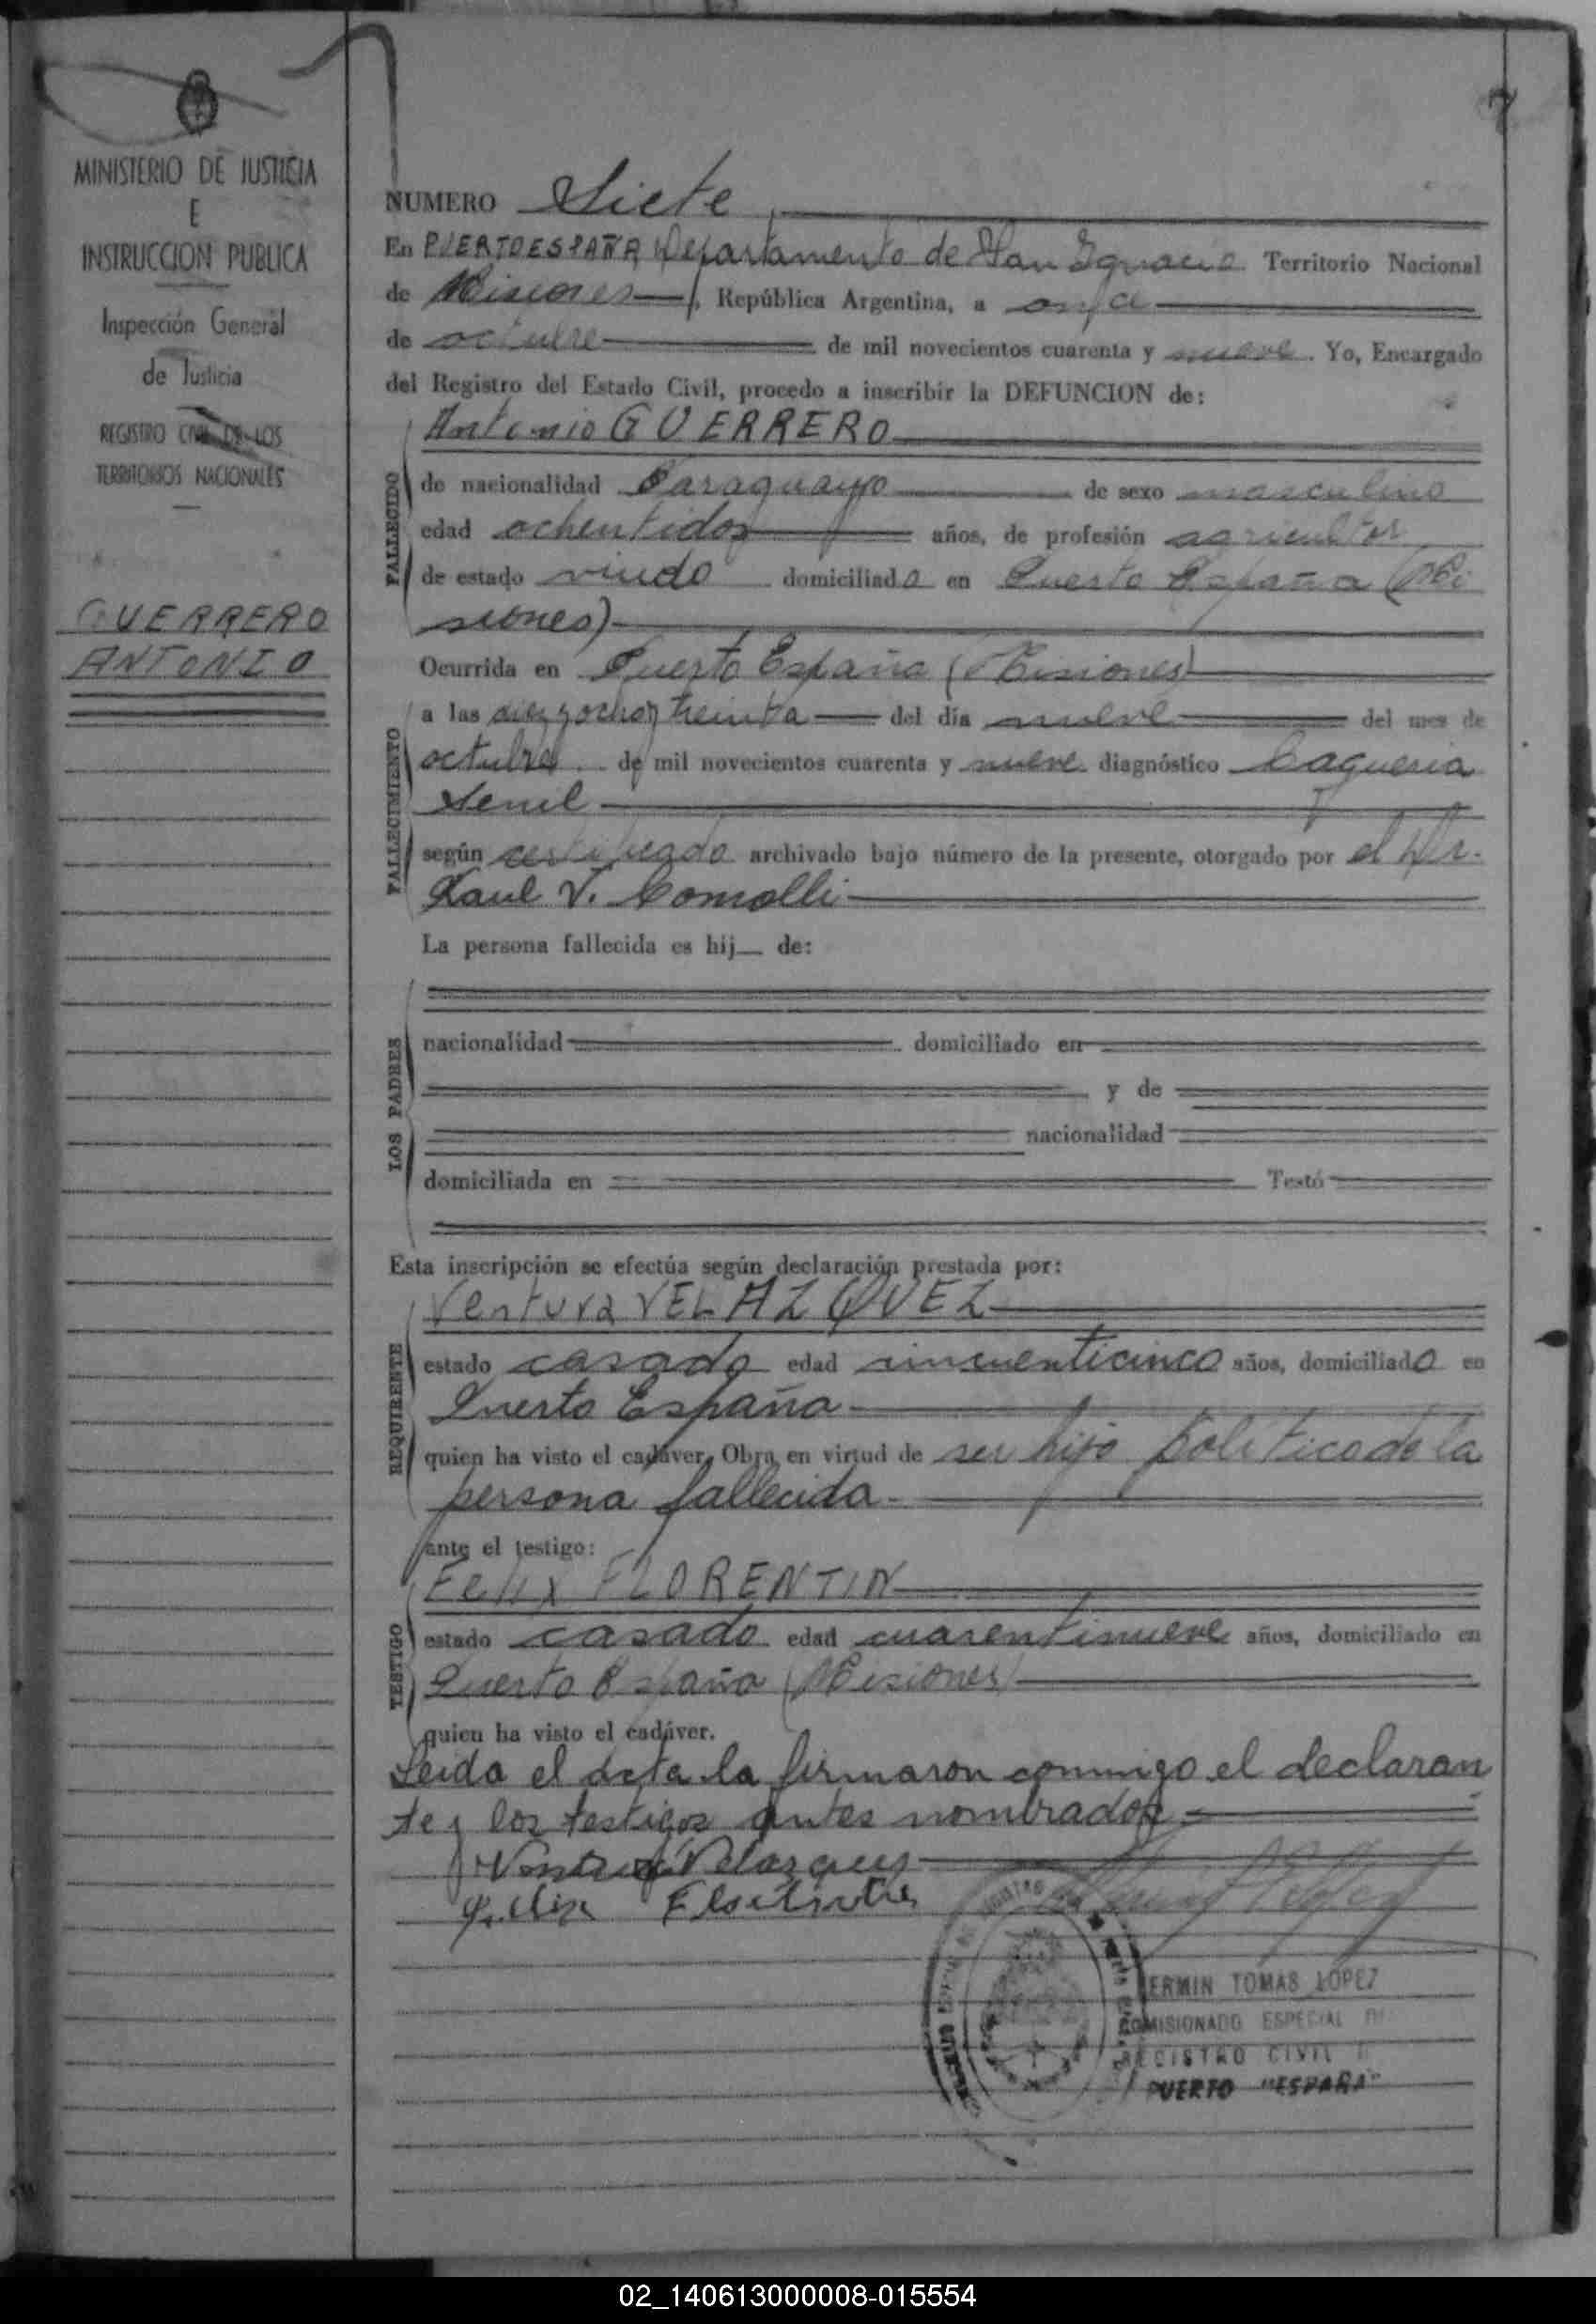 7
MINISTERIO DE JUSTICIA
E
INSTRUCCION PUBLICA
Inspección General
de Justicia
REGISTRO CIVIL DE LOS
TERRITORIOS NACIONALES
GUERRERO
ANTONIO
NUMERO Siete
En PUERTO ESPAÑA Departamento de San Ignacio Territorio Nacional
de Misiones, República Argentina, a once
de octubre de mil novecientos cuarenta y nueve. Yo, Encargado
del Registro del Estado Civil, procedo a inscribir la DEFUNCION de:
Antonio GUERRERO
FALLECIDO
de nacionalidad Paraguayo de sexo masculino
edad ochentidos años, de profesión agricultor
de estado viudo domiciliado en Puerto España (Mi
siones)
FALLECIMIENTO
Ocurrida en Puerto España (Misiones)
a las diez y ocho y treinta del día nueve del mes de
octubre de mil novecientos cuarenta y nueve diagnóstico Caquexia
Senil
según certificado archivado bajo número de la presente, otorgado por el Dr.
Raul V. Comolli
La persona fallecida es hij de:
LOS PADRES
nacionalidad domiciliado en
y de
nacionalidad
domiciliada en Testó
Esta inscripción se efectúa según declaración prestada por:
REQUIRENTE
Ventura VELAZQUEZ
estado casado edad cincuenticinco años, domiciliado en
Puerto España
quien ha visto el cadáver. Obra en virtud de ser hijo politico de la
persona fallecida
ante el testigo:
TESTIGO
Felix FLORENTIN
estado casado edad cuarentinueve años, domiciliado en
Puerto España (Misiones)
quien ha visto el cadáver.
Leida el acta la firmaron conmigo el declaran
te y los testigos antes nombrados
Ventura Velazquez
Felix
ERMIN TOMAS LOPEZ
COMISIONADO ESPECIAL
REGISTRO CIVIL
PUERTO "ESPAÑA"
02_140613000008-015554